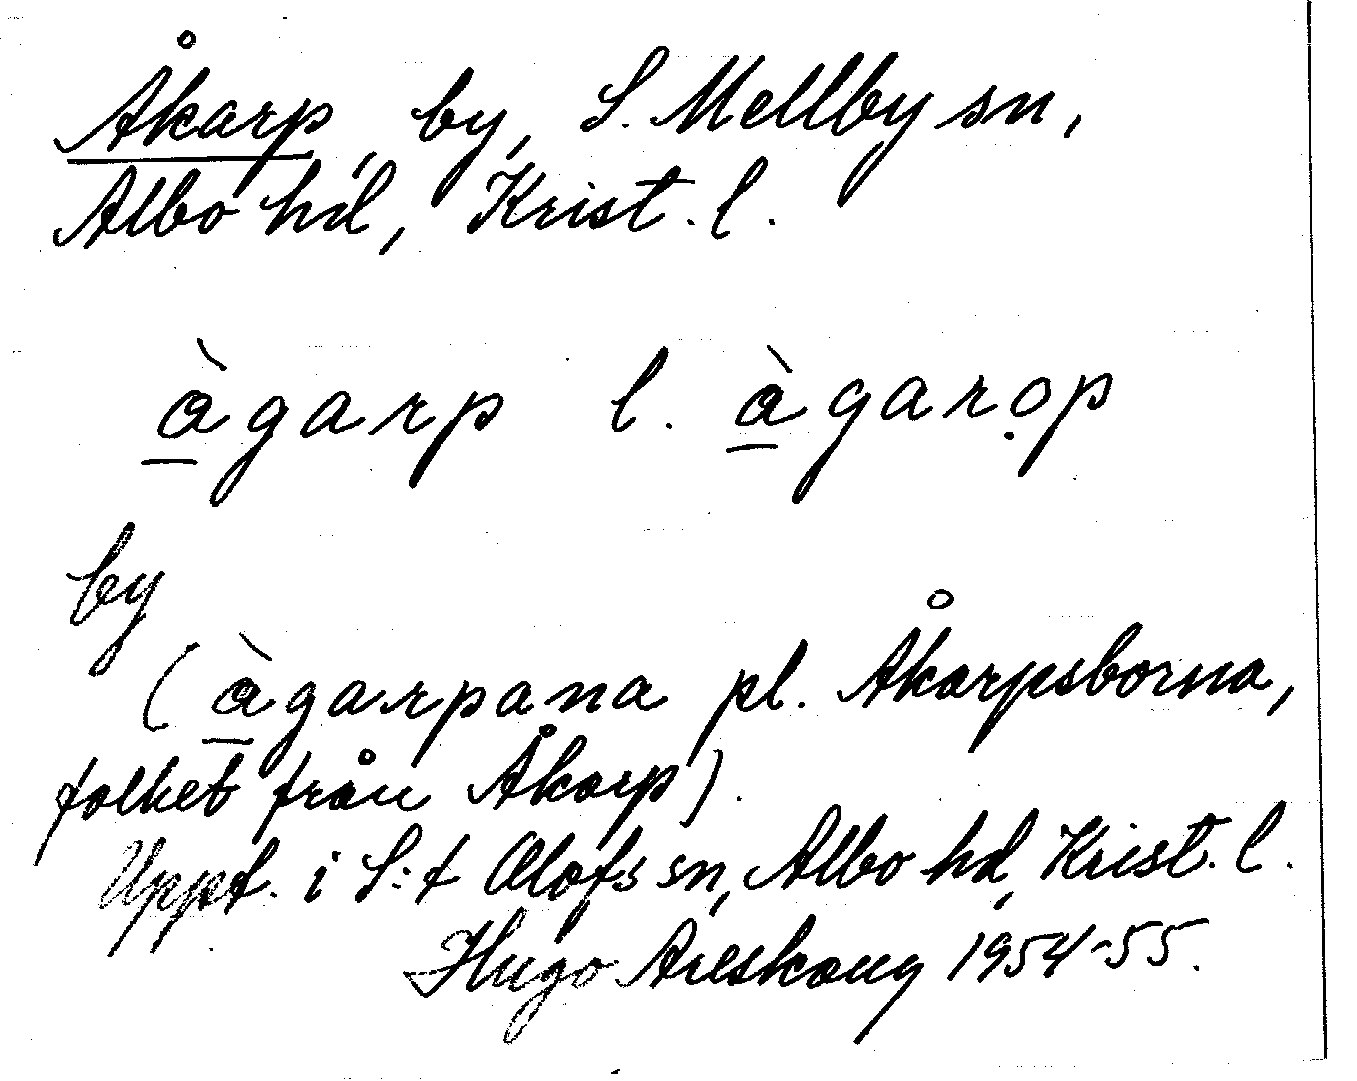 Åkarp, by, S. Mellby sn,
Albo hd, Krist. l.
àgarp l. àgarọp
by
(àgarpana pl. Åkarpsborna,
folket från Åkarp).
Uppt. i S:t Olofs sn, Albo hd, Krist. l.
Hugo Areskoug 1954-55.